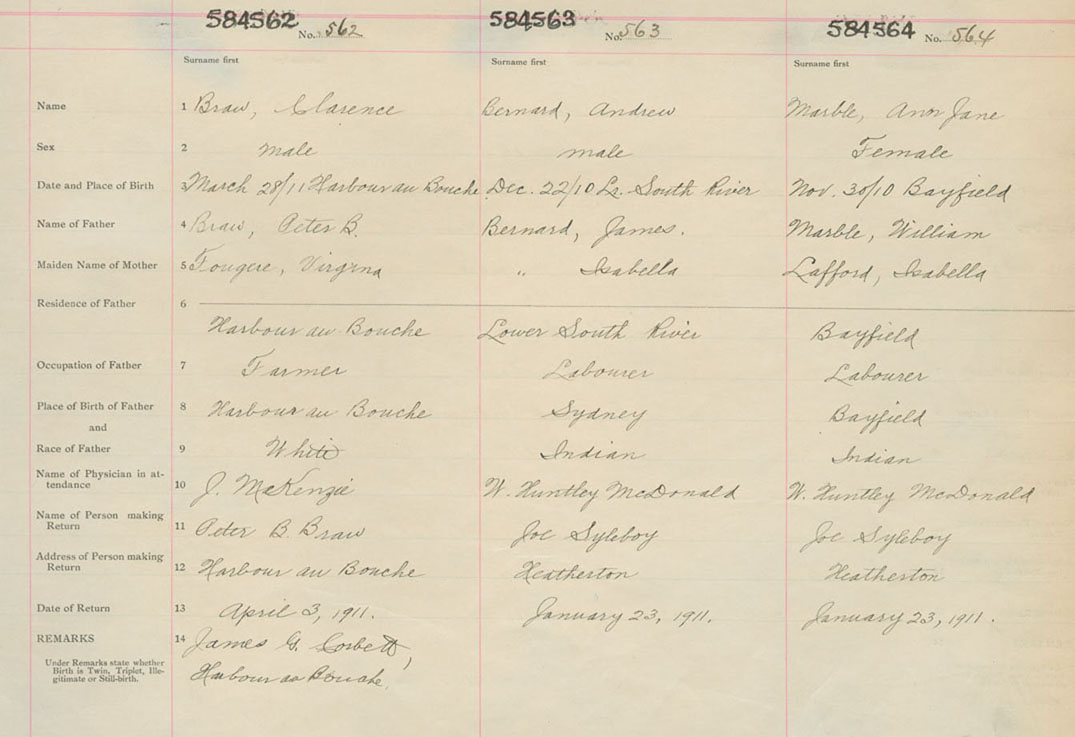 584562 No. 562 584563 No. 563 584564 No. 564
Surname first Surname first Surname first
Name 1 Braw, Clarence Bernard, Andrew Marble, Ann Jane
Sex 2 male male Female
Date and Place of Birth 3 March 28/11 Harbour au Bouche Dec. 22/10 Lr. South River Nov. 30/10 Bayfield
Name of Father 4 Braw, Peter B. Bernard, James. Marble, William
Maiden Name of Mother 5 Fougere, Virgina " Isabella Lafford, Isabella
Residence of Father 6
Harbour au Bouche Lower South River Bayfield
Occupation of Father 7 Farmer Labourer Labourer
Place of Birth of Father 8 Harbour au Bouche Sydney Bayfield
and
Race of Father 9 White Indian Indian
Name of Physician in at-
tendance 10 J. McKenzie W. Huntley McDonald W. Huntley McDonald
Name of Person making
Return 11 Peter B. Braw Joe Syleboy Joe Syleboy
Address of Person making
Return 12 Harbour au Bouche Heatherton Heatherton
Date of Return 13 April 3, 1911. January 23, 1911. January 23, 1911.
REMARKS 14 James G. Corbett,
Under Remarks state whether
Birth is Twin, Triplet, Ille-
gitimate or Still-birth.
Harbour au Bouche.